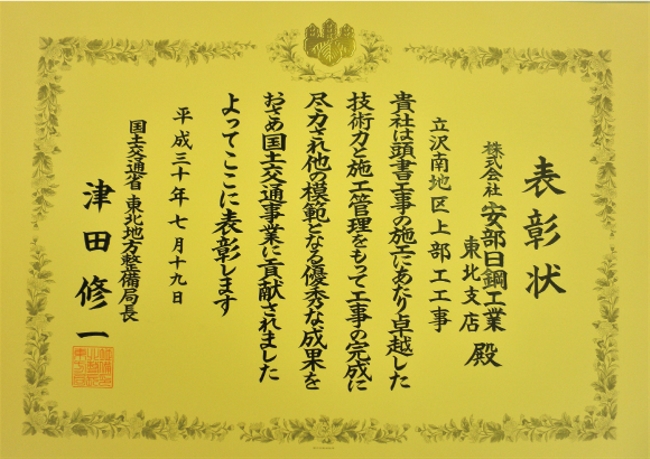 表彰状
株式会社 安部日鋼工業
東北支店 殿
立沢南地区上部工工事
貴社は頭書工事の施工にあたり卓越した
技術力と施工管理をもって工事の完成に
尽力され他の模範となる優秀な成果を
おさめ国土交通事業に貢献されました
よってここに表彰します
平成三十年七月十九日
国土交通省 東北地方整備局長
津田修一